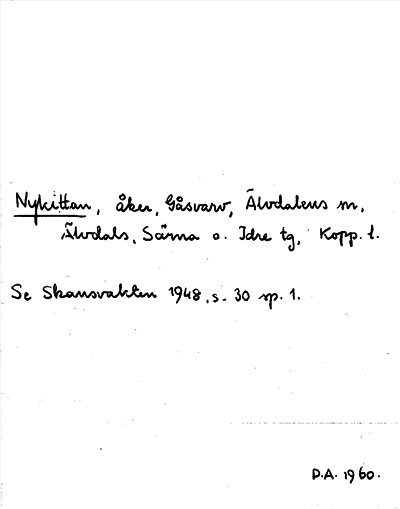 Nykittan, åker, Gåsvarv, Älvdalens m,
Älvdals, Särna o. Idre tg, Kopp. l.
Se Skansvakten 1948, s. 30 sp. 1.
D.A. 1960.